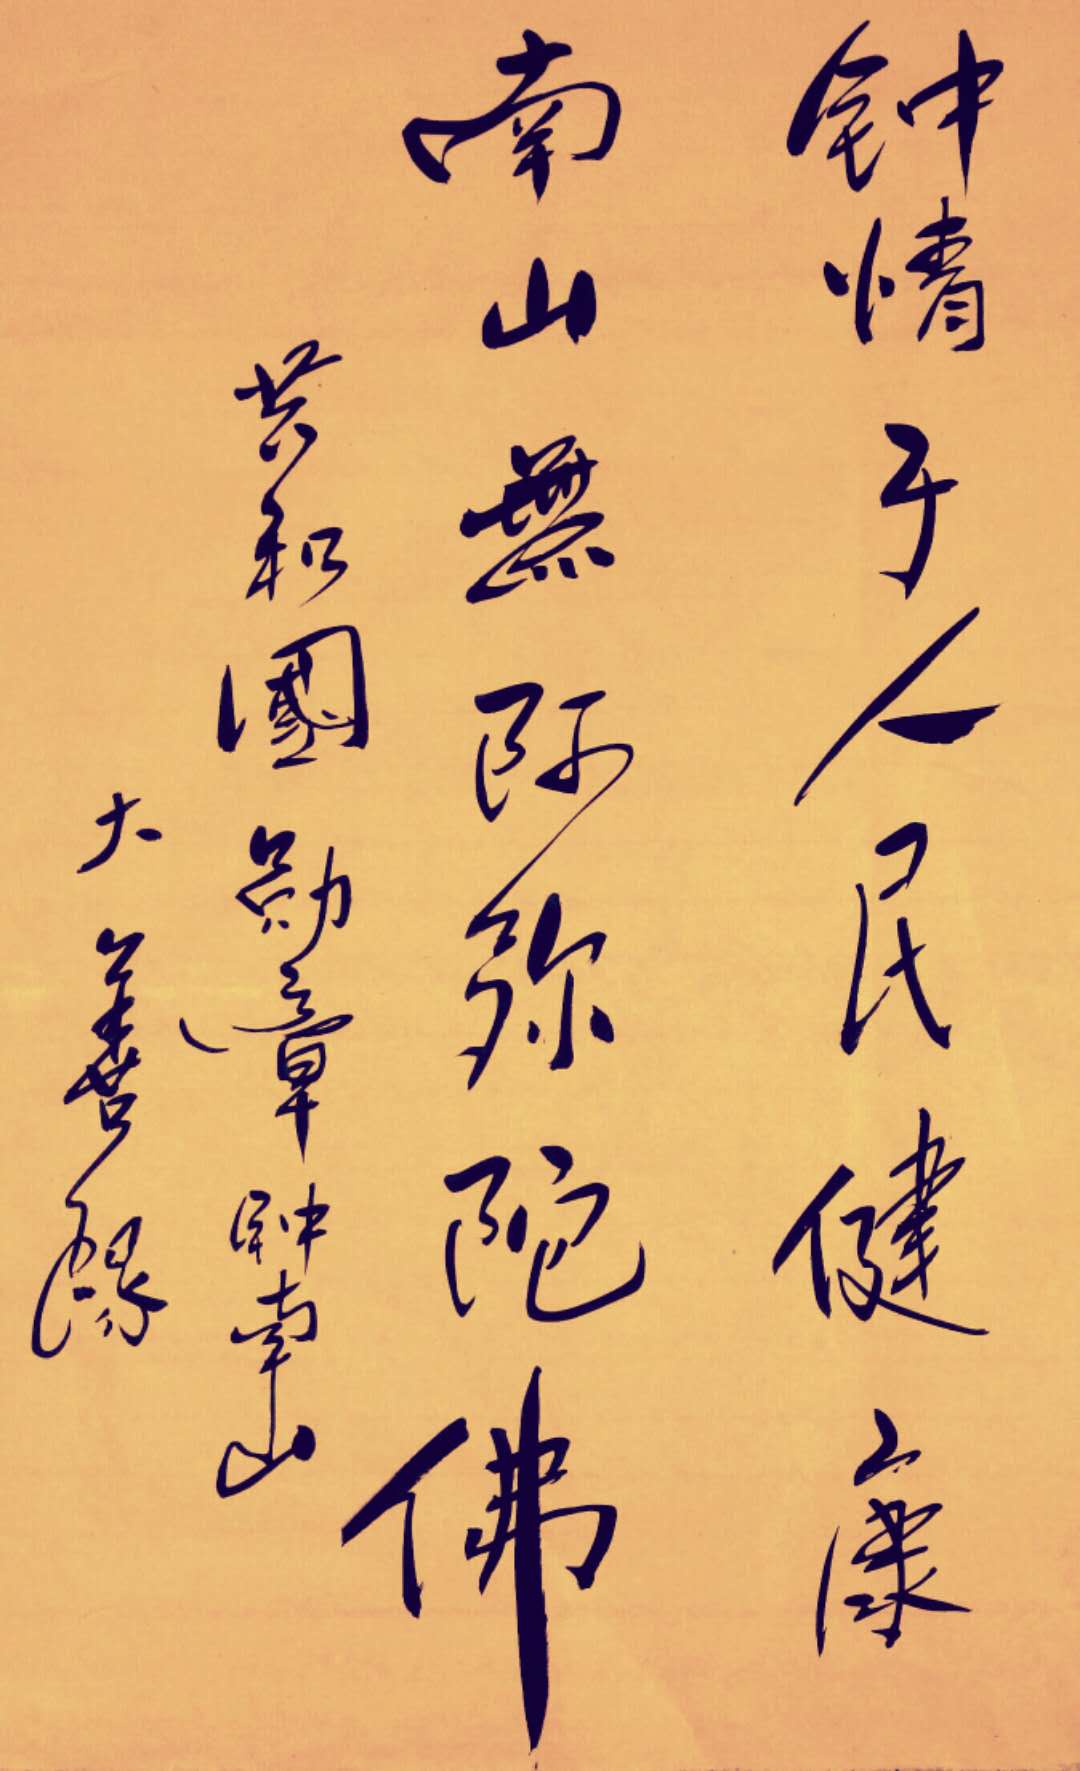 钟情于人民健康
南山無阿弥陀佛
共和國勋章钟南山
大善隊